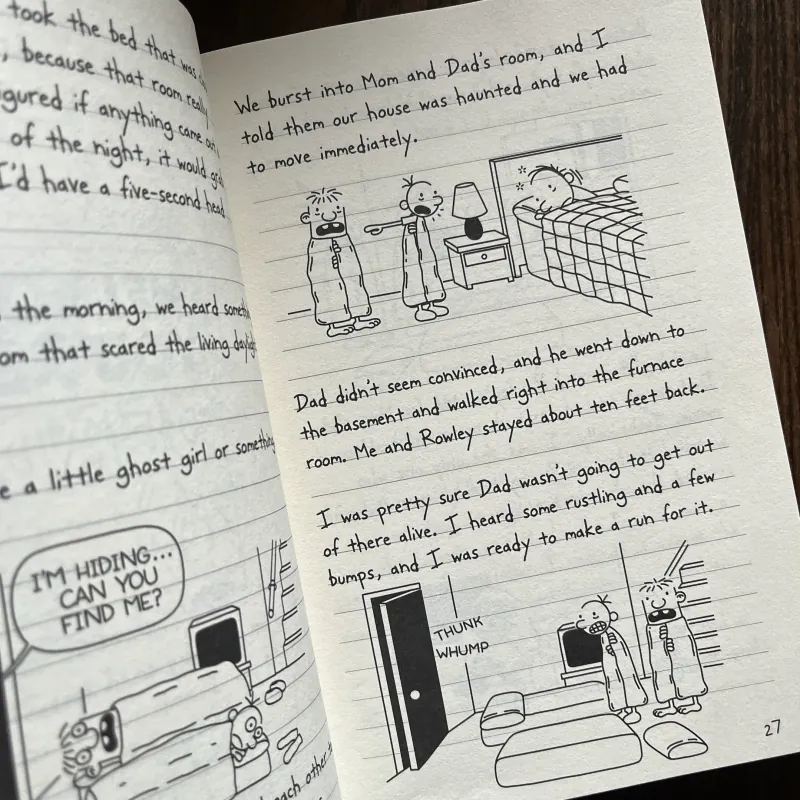 took the bed that was
, because that room really
igured if anything came out
of the night, it would
I'd have a five-second head
the morning, we heard
om that scared the living
e a little ghost girl or something
I'M HIDING...
CAN YOU
FIND ME?
each other
We burst into Mom and Dad's room, and I
told them our house was haunted and we had
to move immediately.
Dad didn't seem convinced, and he went down to
the basement and walked right into the furnace
room. Me and Rowley stayed about ten feet back.
I was pretty sure Dad wasn't going to get out
of there alive. I heard some rustling and a few
bumps, and I was ready to make a run for it.
THUNK
WHUMP
27